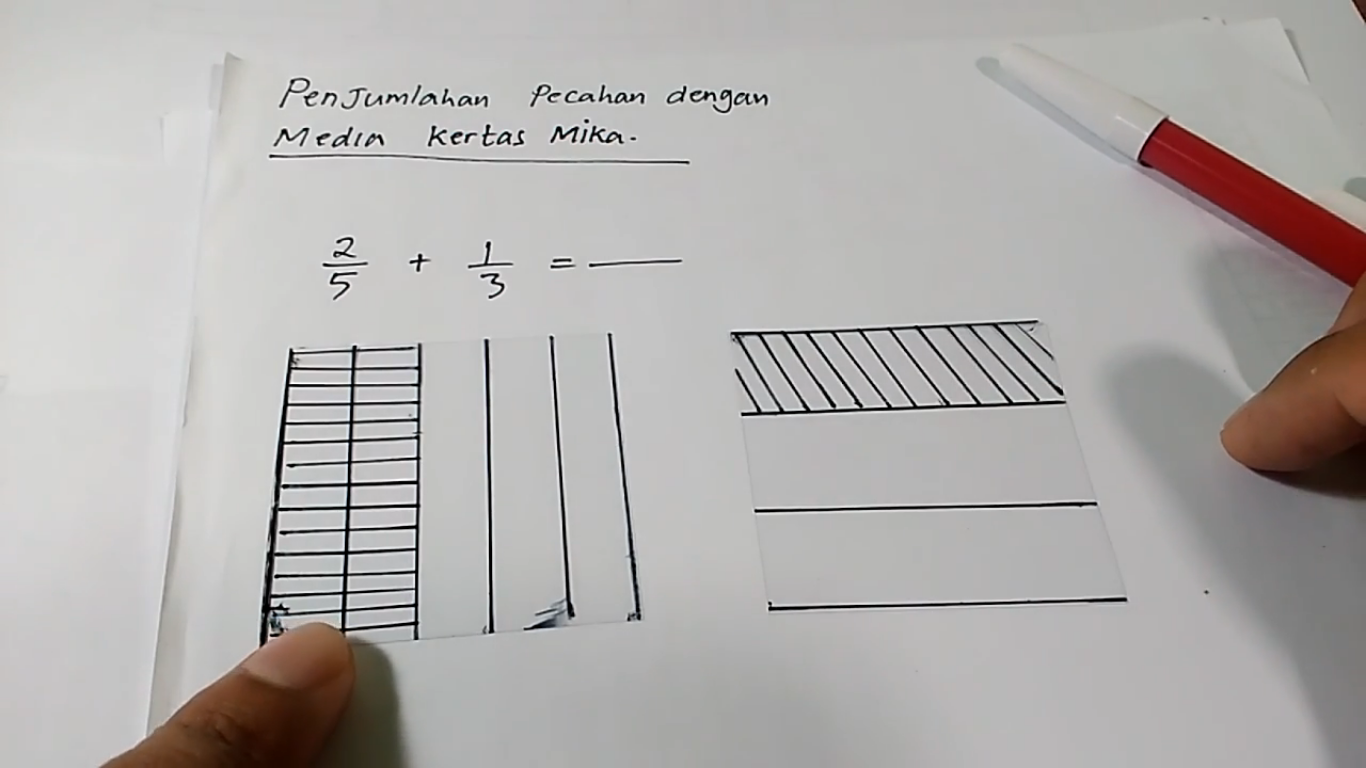 Penjumlahan Pecahan dengan
Media Kertas Mika.
2/5 + 1/3 = ―